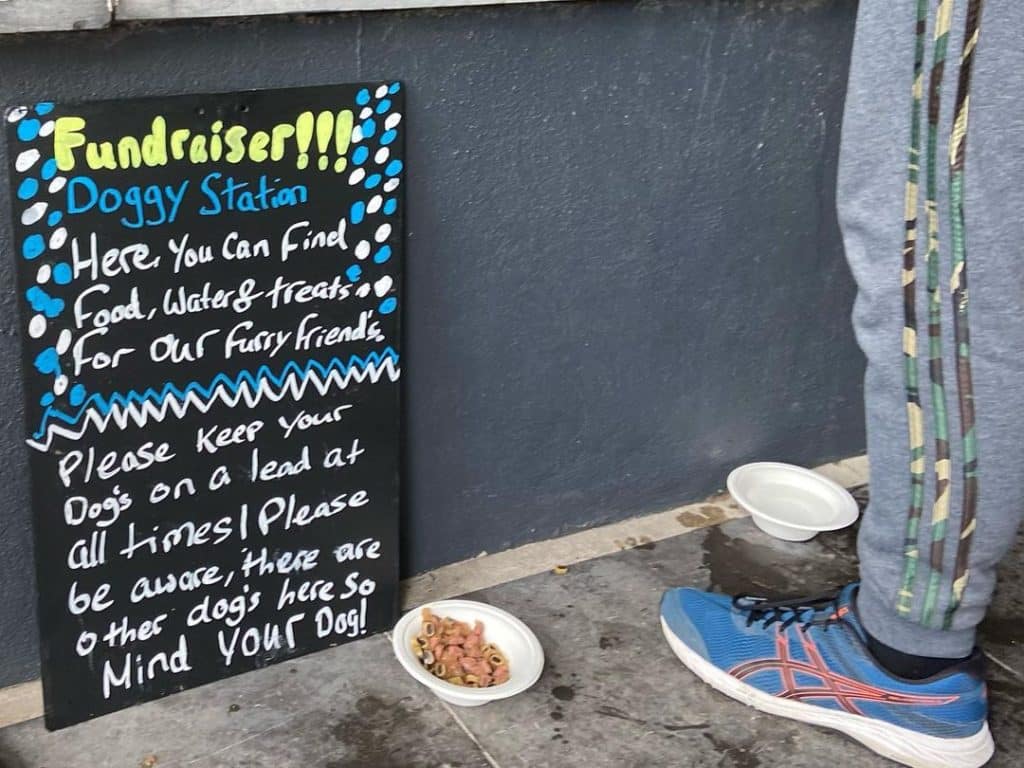 Fundraiser!!!
Doggy Station
Here, You Can Find
Food, Water & treats
For Our Furry friend's.
Please Keep your
Dog's on a lead at
all times! Please
be aware, there are
other dog's here so
Mind YOUR Dog!